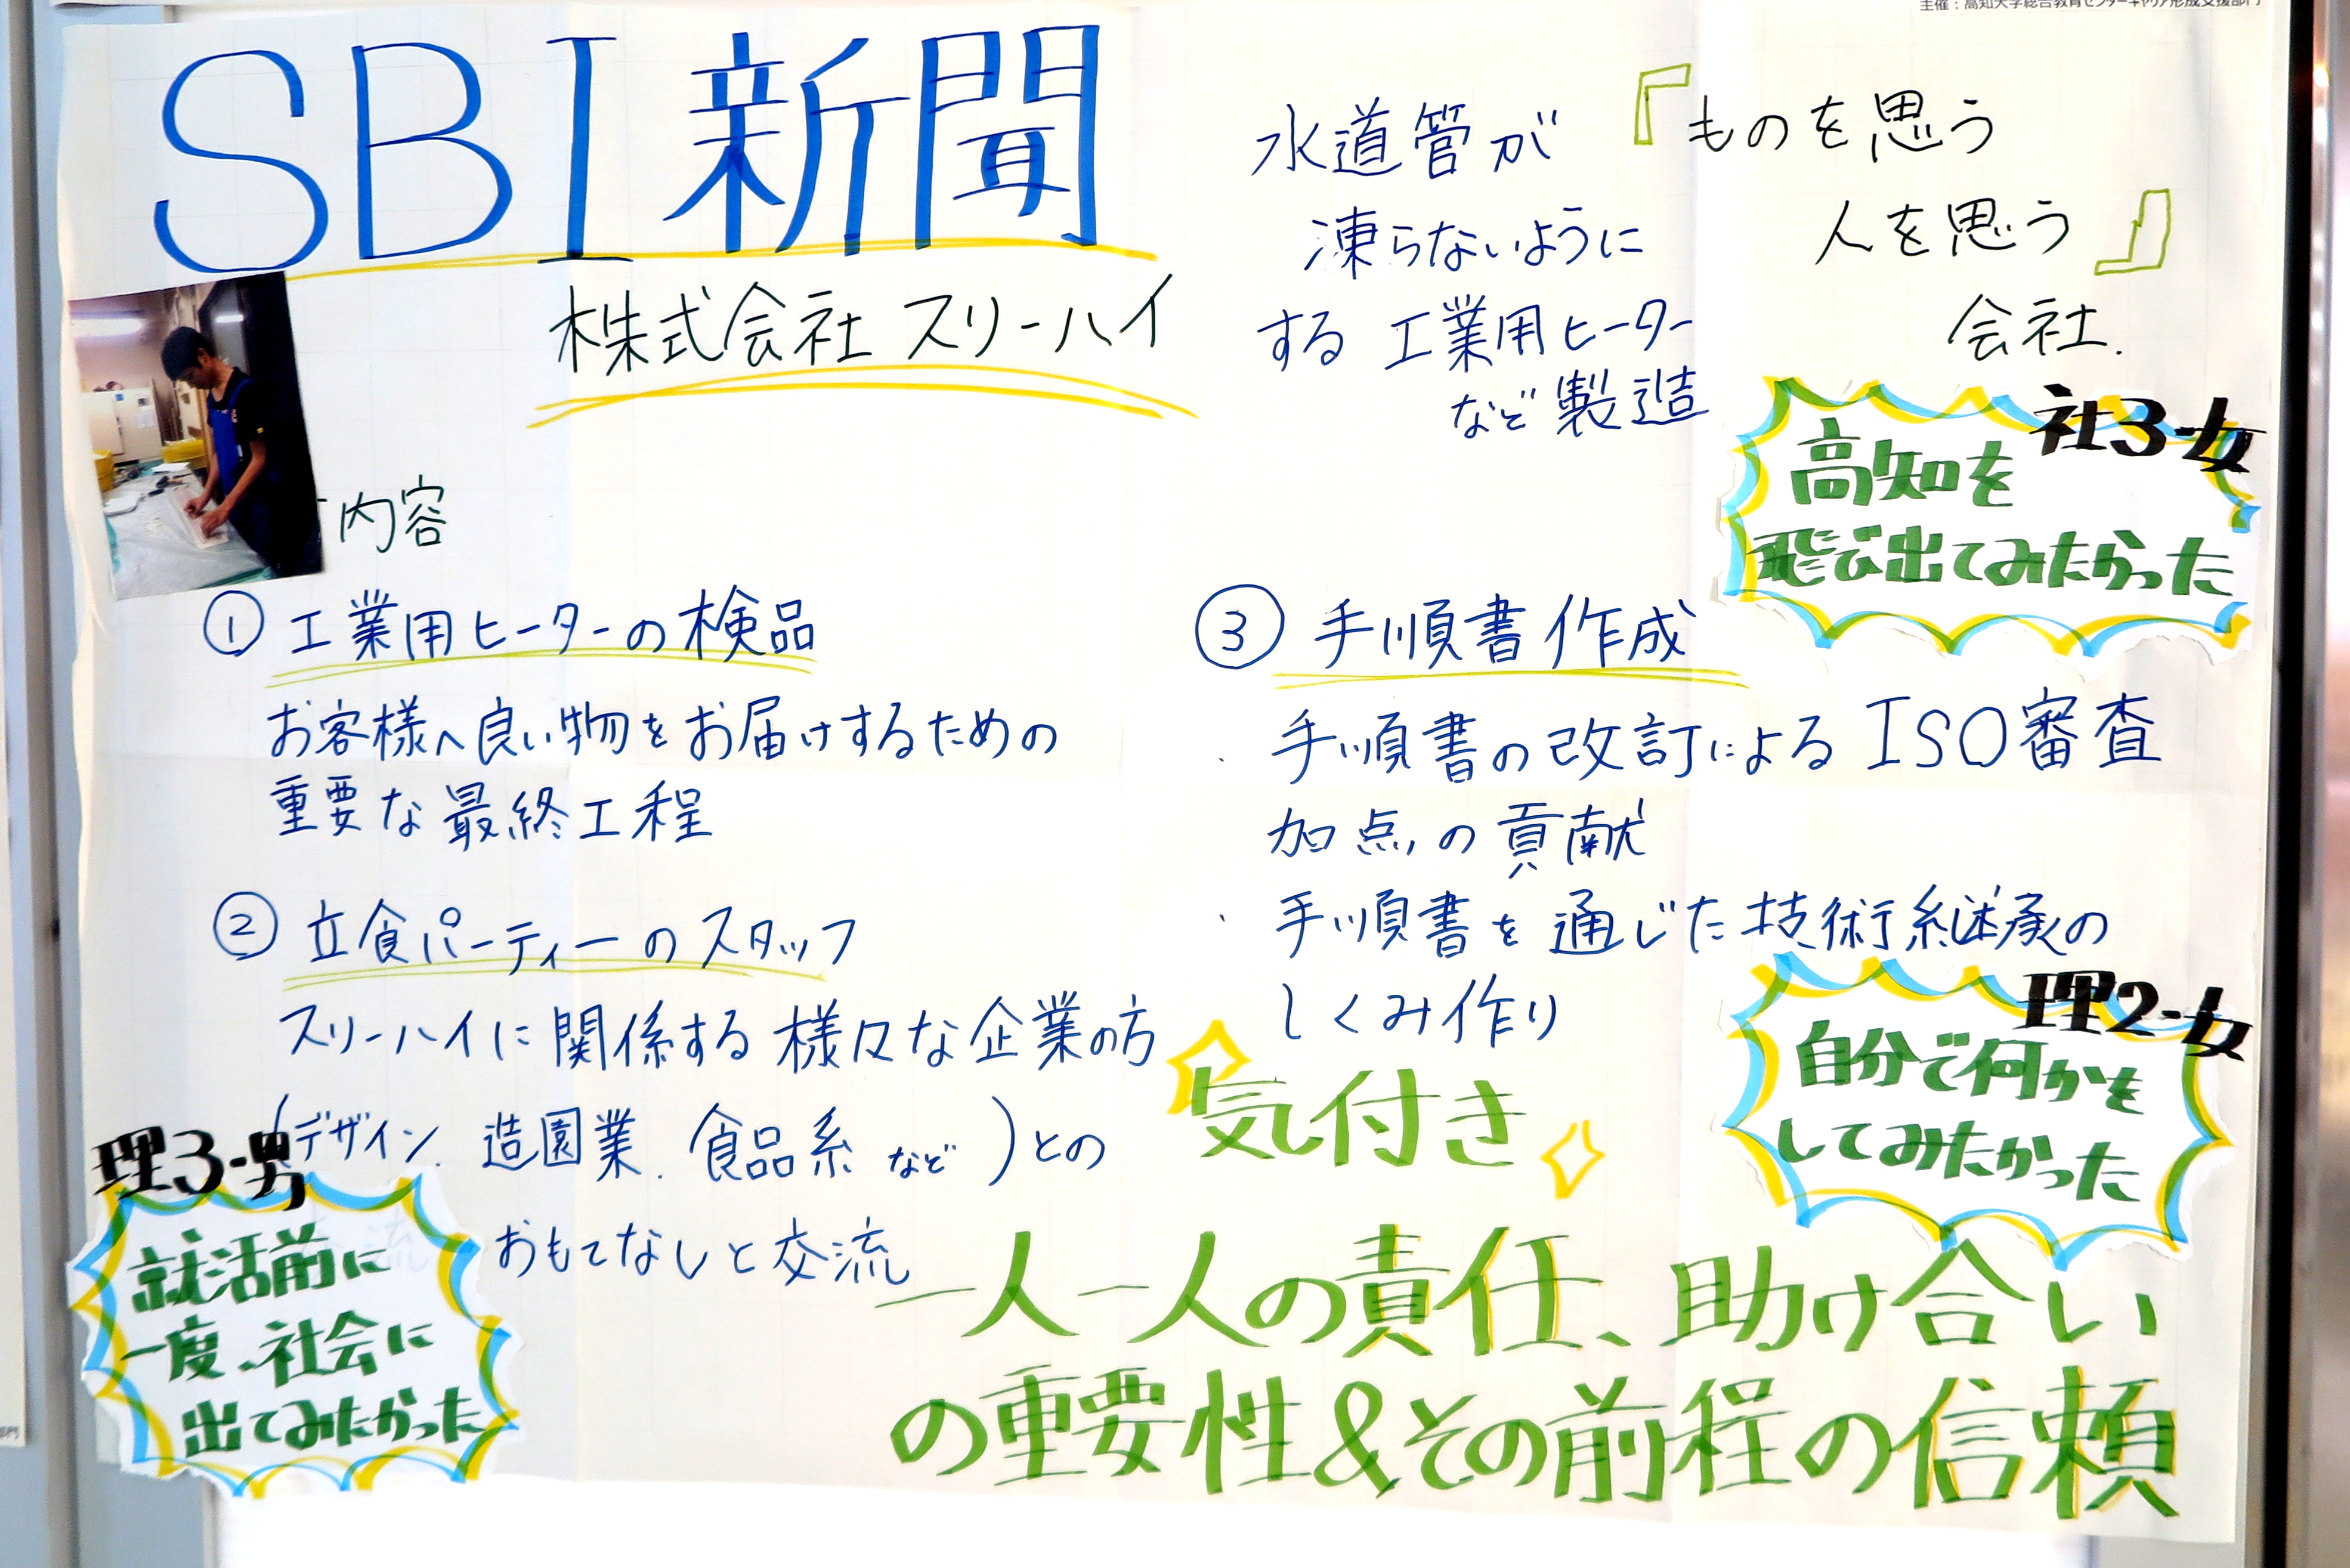 主催：高知大学総合教育センターキャリア形成支援部門
SBI新聞
株式会社 スリーハイ
水道管が
凍らないように
する 工業用ヒーター
など製造
『ものを思う
人を思う』
会社.
社3-女
高知を
飛び出てみたかった
内容
① 工業用ヒーターの検品
お客様へ良い物をお届けするための
重要な最終工程
② 立食パーティーのスタッフ
スリーハイに関係する様々な企業の方
(デザイン. 造園業. 食品系 など)との
おもてなしと交流
理3-男
就活前に
一度、社会に
出てみたかった
③ 手順書作成
・手順書の改訂によるISO審査
加点の貢献
・手順書を通じた技術継承の
しくみ作り
理2-女
自分で何かも
してみたかった
気付き
一人一人の責任、助け合い
の重要性&その前程の信頼